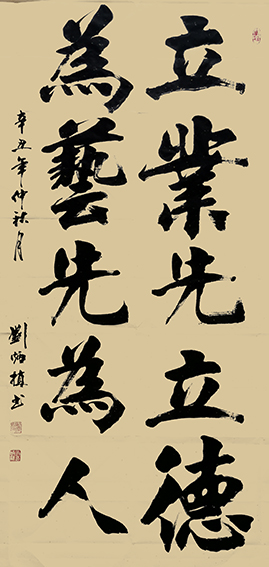 立業先立德
為藝先為人
辛丑年仲秋月
劉炳植书